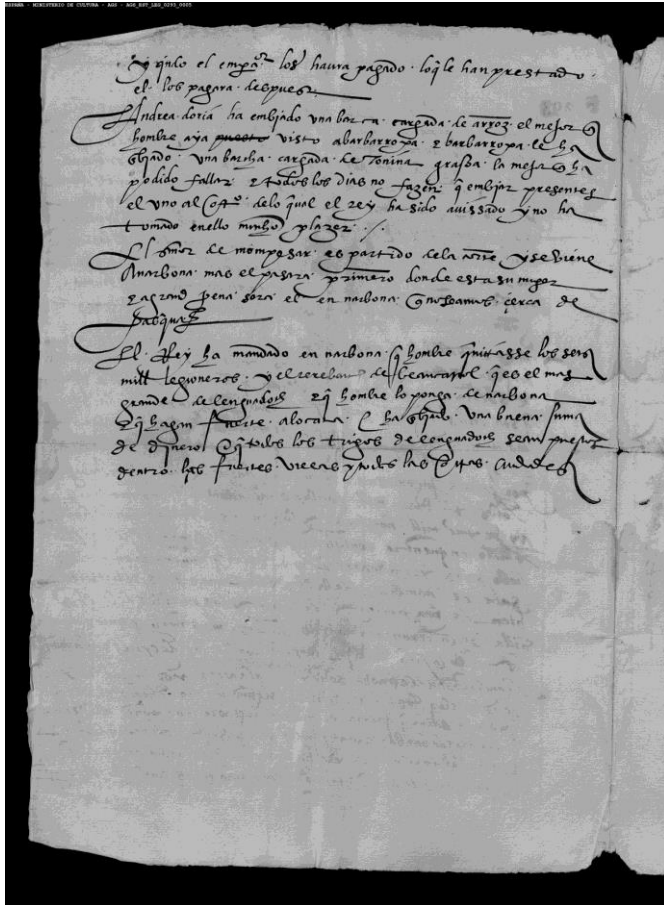 ESPAÑA - MINISTERIO DE CULTURA - AGS - AGS_EST_LEG_0293_0005
y q̃ndo el empor los haura pagado. loq̃ le han prestado.
el. los pagara. despues.
Andrea doria ha embiado una barca. cargada. de arroz. el mejor q̃
hombre aya puesto visto abarbarroxa. e barbarroxa. le ha
una barcha. cargada. de Tonina grassa. la mejor q̃ ha
podido fallar. e todos los dias no fazen. q̃ embiar presentes
el uno al otro. delo qual el rey ha sido auissado y no ha
tomado enello mucho plazer.
El señor de mompesar. es partido dela corte y se viene
Anarbona. mas el pasara primero donde esta su muger
e a grand pena. sera el en narbona. cerca de
pasqua
El. Rey ha mandado en narbona. q̃ hombre los seys
mill legioneros. y el de q̃ es el mas
grande de lenguadoch e q̃ hombre lo ponga. de narbona
e q̃ hagan fuerte. una buena. suma
de dinero. q̃ todos los trigos de lenguadoch sean puestos
dentro. las fuertes. villas y todos las ciudades